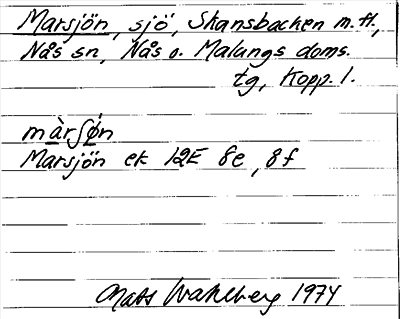 Marsjön, sjö, Skansbacken m.fl.,
Nås sn, Nås o. Malungs doms.
tg, Kopp. l.
màrʃø̀n
Marsjön ek 12E 8e, 8f
Mats Wahlberg 1974